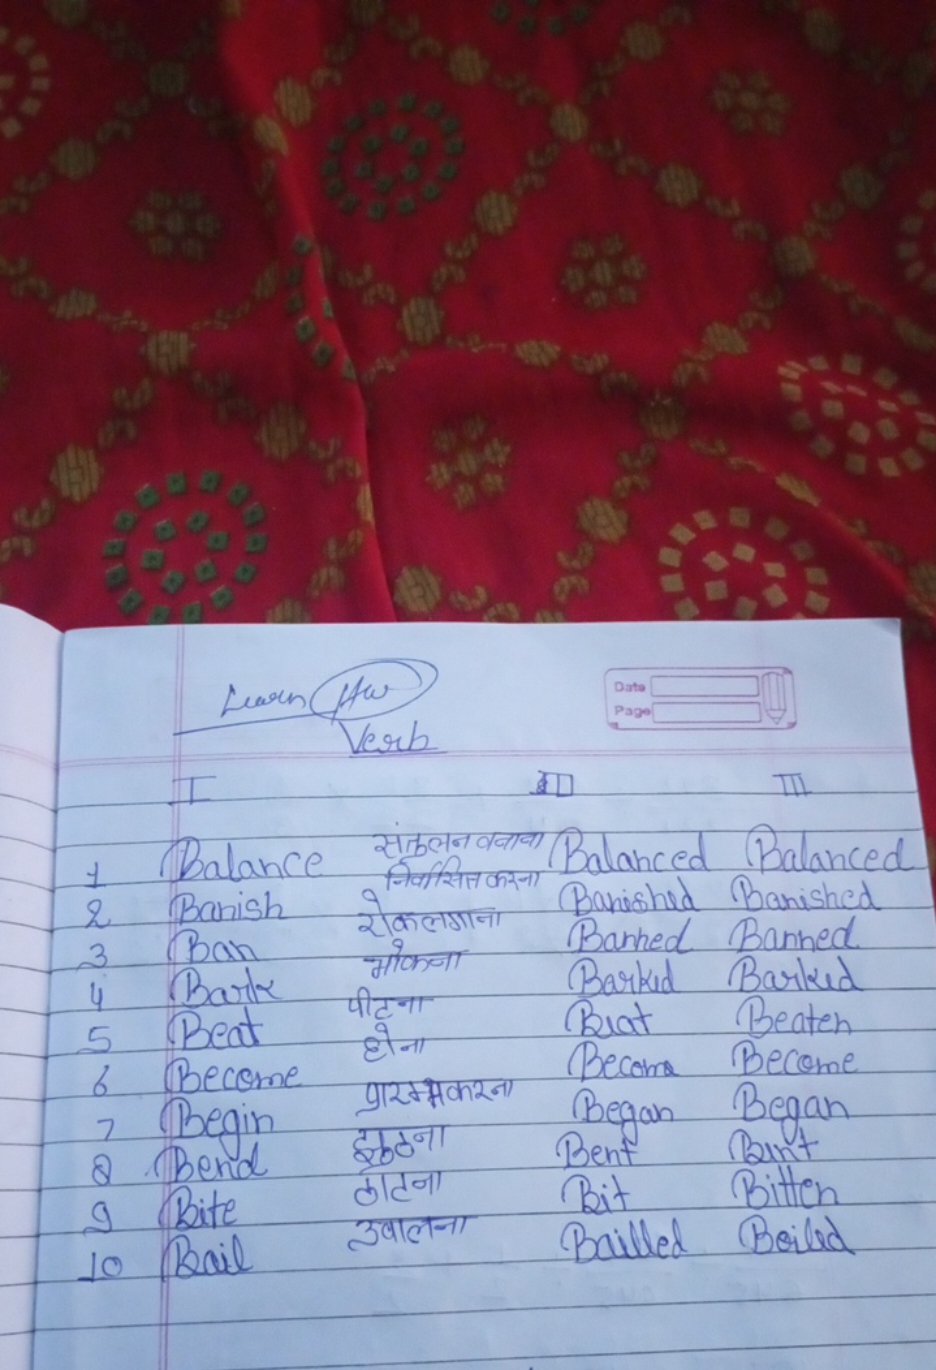 Learn HW
Date
Page
Verb
I II III
1 Balance संतुलन बनाना Balanced Balanced
2 Banish निर्वासित करना Banished Banished
3 Ban रोक लगाना Banned Banned
4 Bark भोकना Barked Barked
5 Beat पीटना Beat Beaten
6 Become होना Become Become
7 Begin प्रारम्भ करना Began Began
8 Bend Bent Bent
9 Bite काटना Bit Bitten
10 Bail उबालना Bailled Boiled